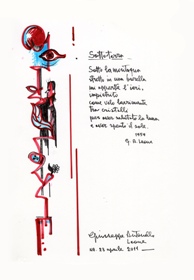 Sotto terra
Sotto la montagna
stretto in una barella
mi apparte l'ieri,
come velo lacrimante
tra cristalli
per aver sentito la luna
e aver spento il sole.
1959
G. A. Leone
Giuseppe Antonello
Leone
23 aprile 2011